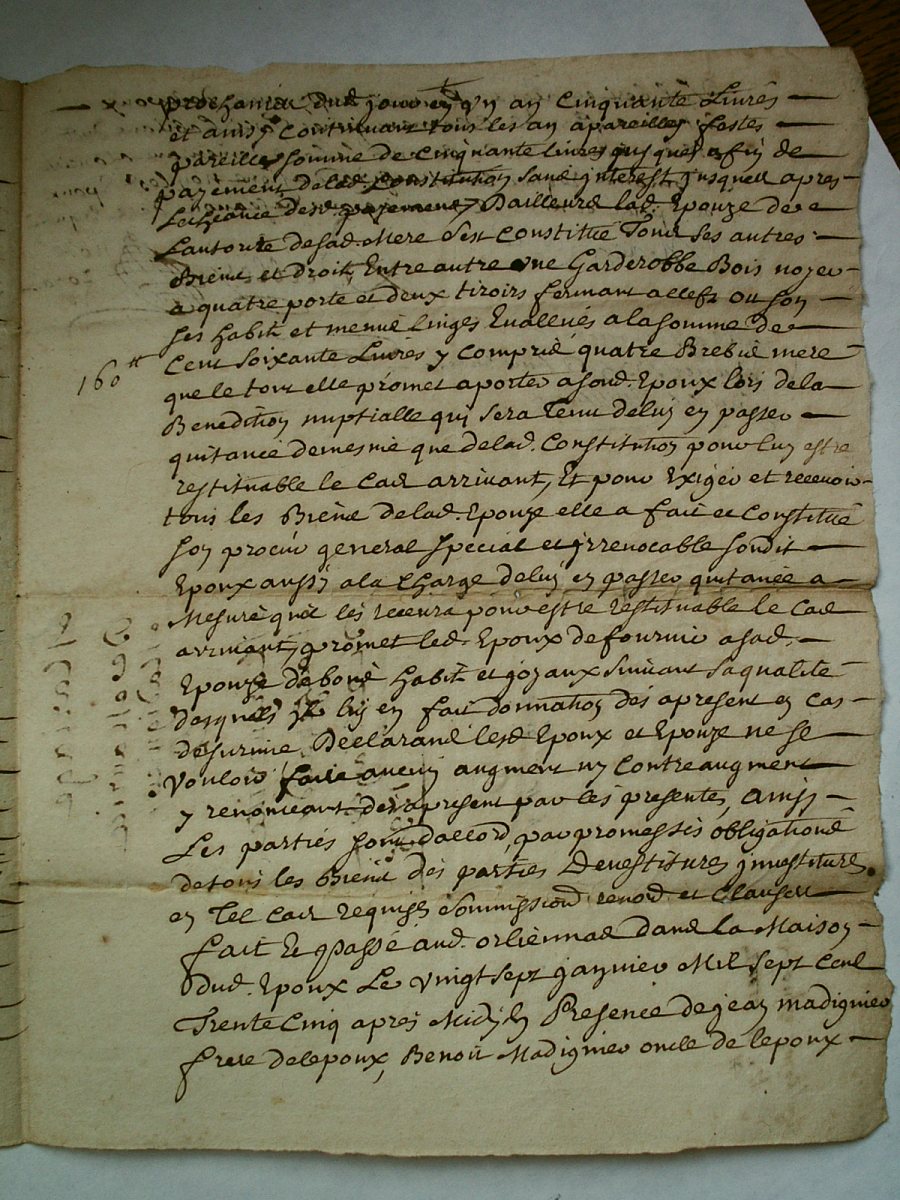 prochanier dud. jour en un an Cinquante Livres
et ainsy continuant tous les an apareilles festes
pareille somme de cinquante livres jusques afin de
payement delad. Constitution sans jnterest jusques apres
Lecheance desd. payement, Dailleurs lad. Epouze de
Lautorite desad. Mere sest Constitué Tous ses autres
Biens et droit, Entre autre une Garderobbe Bois noyer
a quatre porte et deux tiroirs fermant aclefs ou son
ses habit et menue linges Evallués alasomme de
160tt Cent soixante Livres y Compris quatre Brebis mere
que le tout elle promet aporter asond. Epoux lors dela
Benediction nuptialle qui sera Tenu deluy en passer
quitance demesme que delad. Constitution pour luy estre
restituable le Cas arrivant, Et pour Exiger et recevoir
tous les Biens delad. Epouze elle a fait et Constitué
son procur general special et jrrevocable sondit
Epoux aussy ala Charge deluy en passer quitance a
Mesure quil les recevra pour estre restituable le Cas
arrivant, promet led. Epoux de fournir asad.
Epouze de bons habit et joyaux suivant saqualité
desquels il luy en fait donnation des apresent en cas
desurvie, Declarand lesd Epoux et Epouze ne se
Vouloir faire aucun augment ny Contreaugment
y renonceant des apresent par les presentes, ainsy
Les parties sont daccord, par promesses obligations
detous les Biens des parties Devestitures jnvestitures
en Tel Cas requises soumissions renon. et Clauses
fait et passé aud. orliennas dans la Maison
dud. Epoux Le Vingt sept janvier Mil sept Cent
Trente Cinq apres Midy En Presence de jean madignier
frere delepoux, Benoit Madignier oncle de lepoux